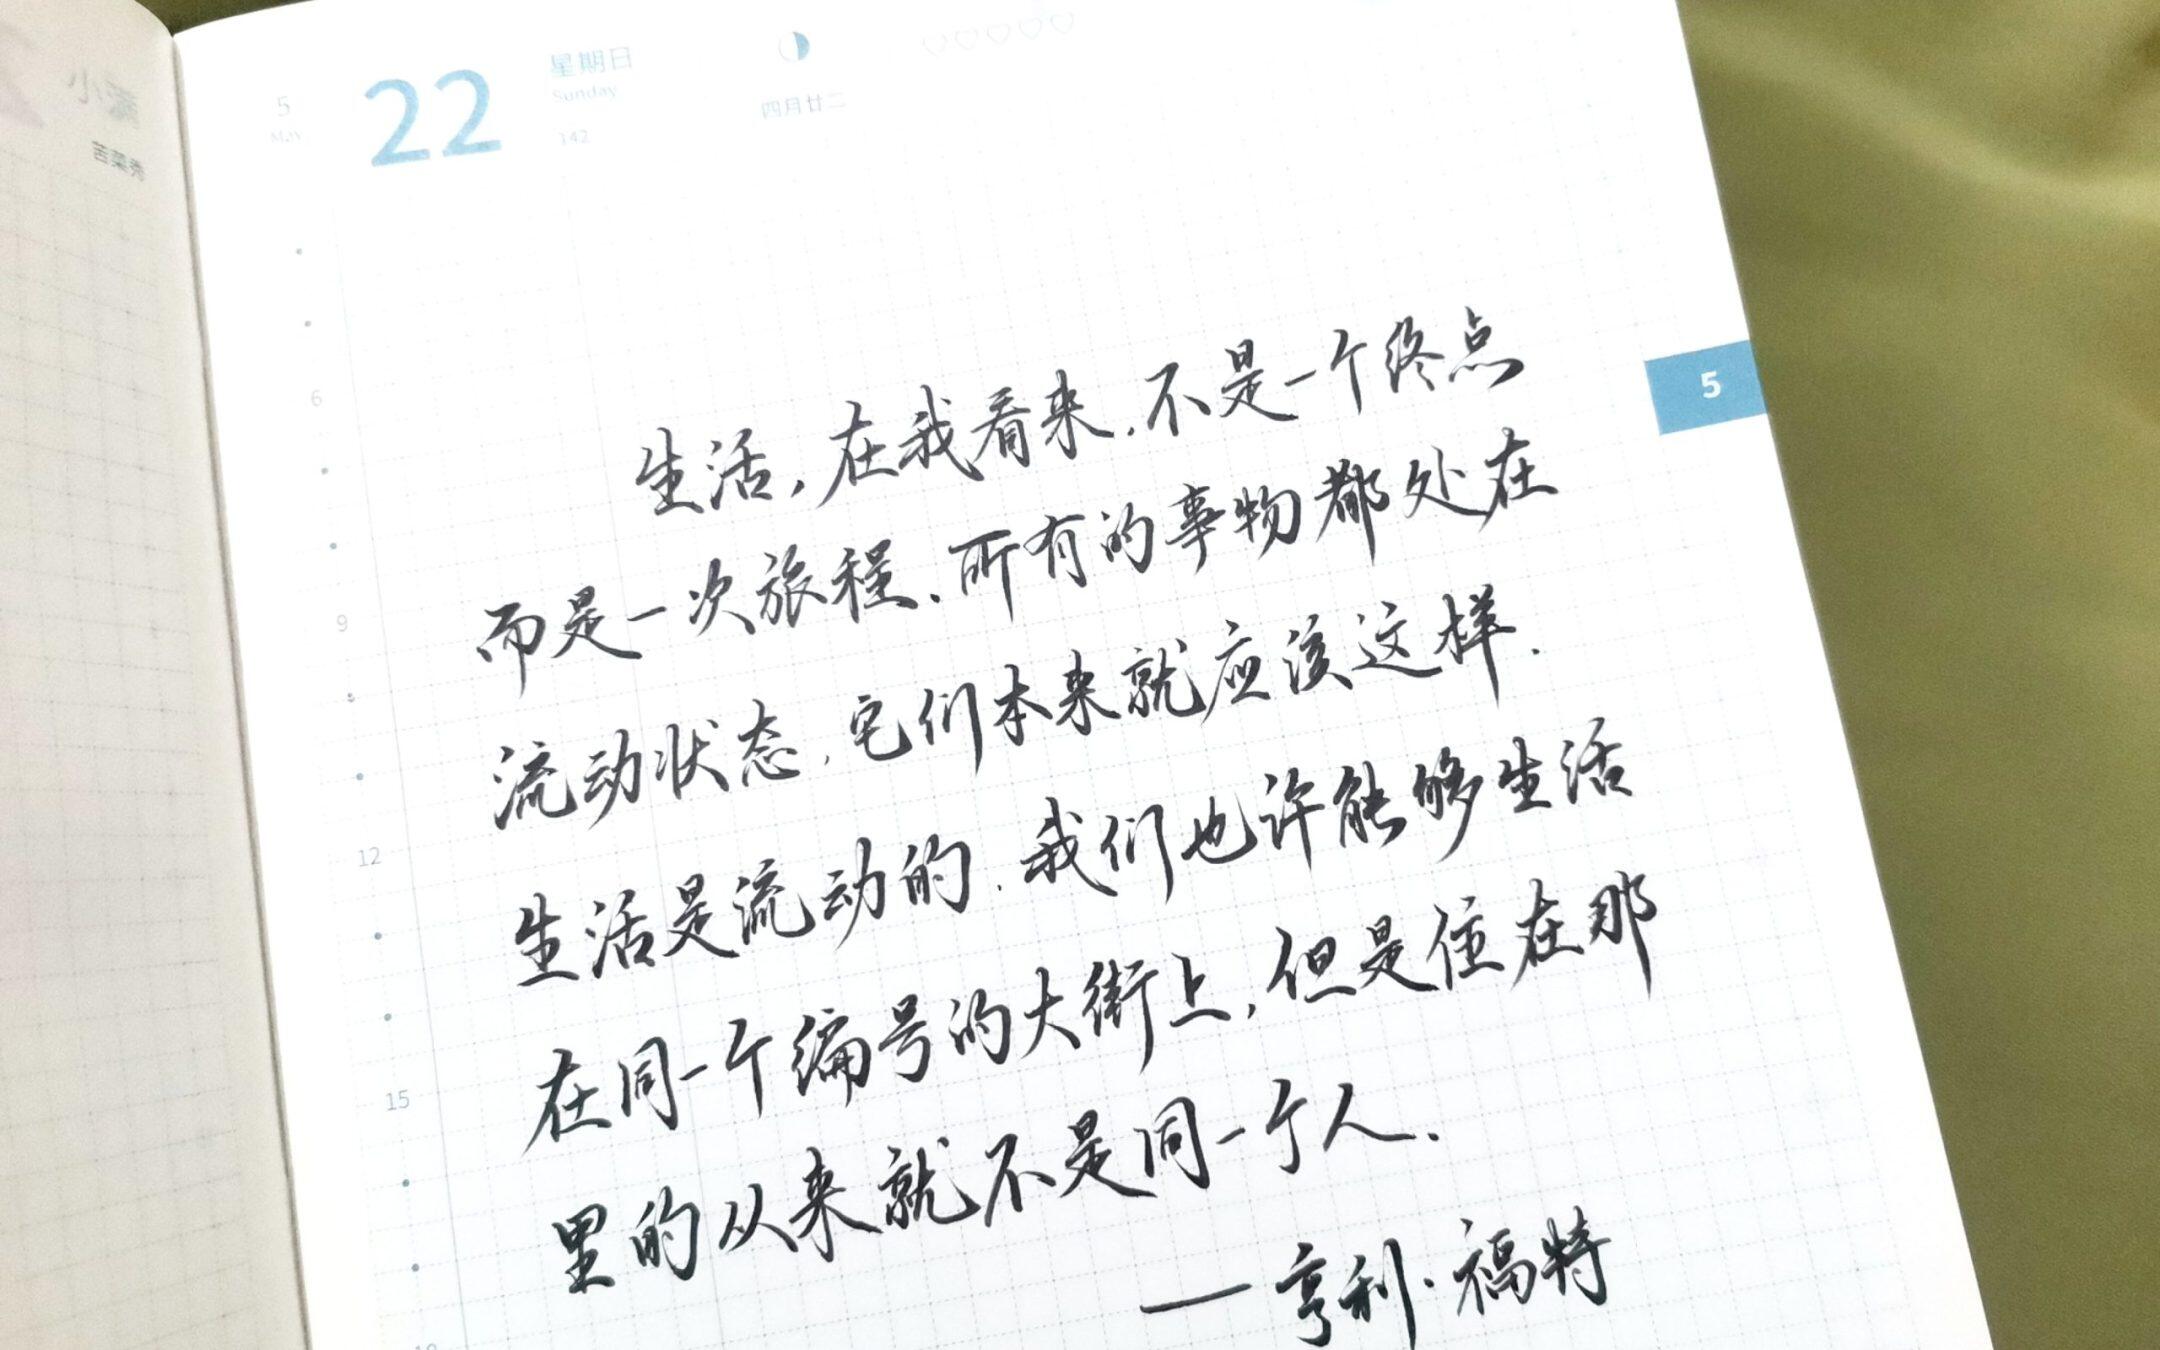 小满
苦菜秀
5
May
22
星期日
Sunday
142
四月廿二
5
6
9
12
15
生活,在我看来,不是一个终点
而是一次旅程、所有的事物都处在
流动状态,它们本来就应该这样.
生活是流动的.我们也许能够生活
在同一个编号的大街上,但是住在那
里的从来就不是同一个人.
—亨利·福特